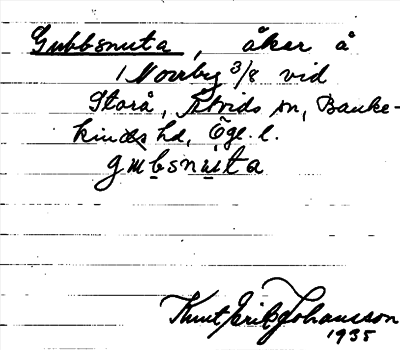 Gubbsnuta, åker å
1 Norrby 3/8 vid
Storå, Åtvids sn, Banke-
kinds hd, Ögl.
gubsnuta
Knut Erik Johansson
1935